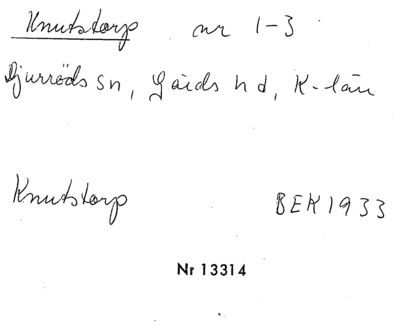 Knutstorp nr 1-3
Djurröds sn, Gärds hd, K-län
Knutstorp BEK 1933
Nr 13314